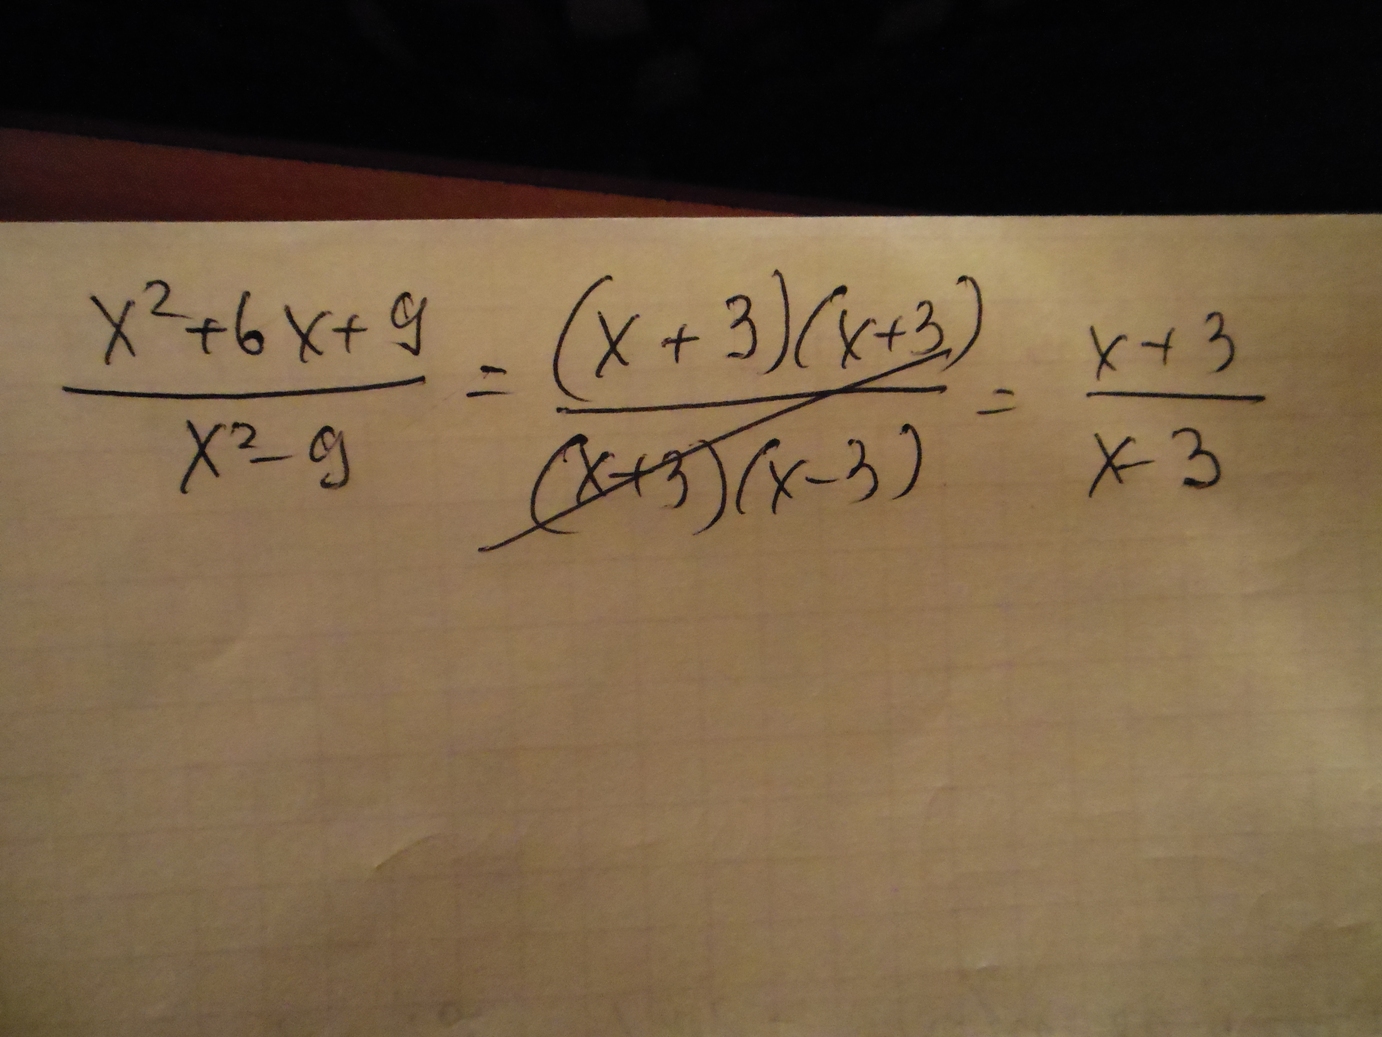 x²+6x+9 / x²-9 = (x+3)(x+3) / (x+3)(x-3) = x+3 / x-3